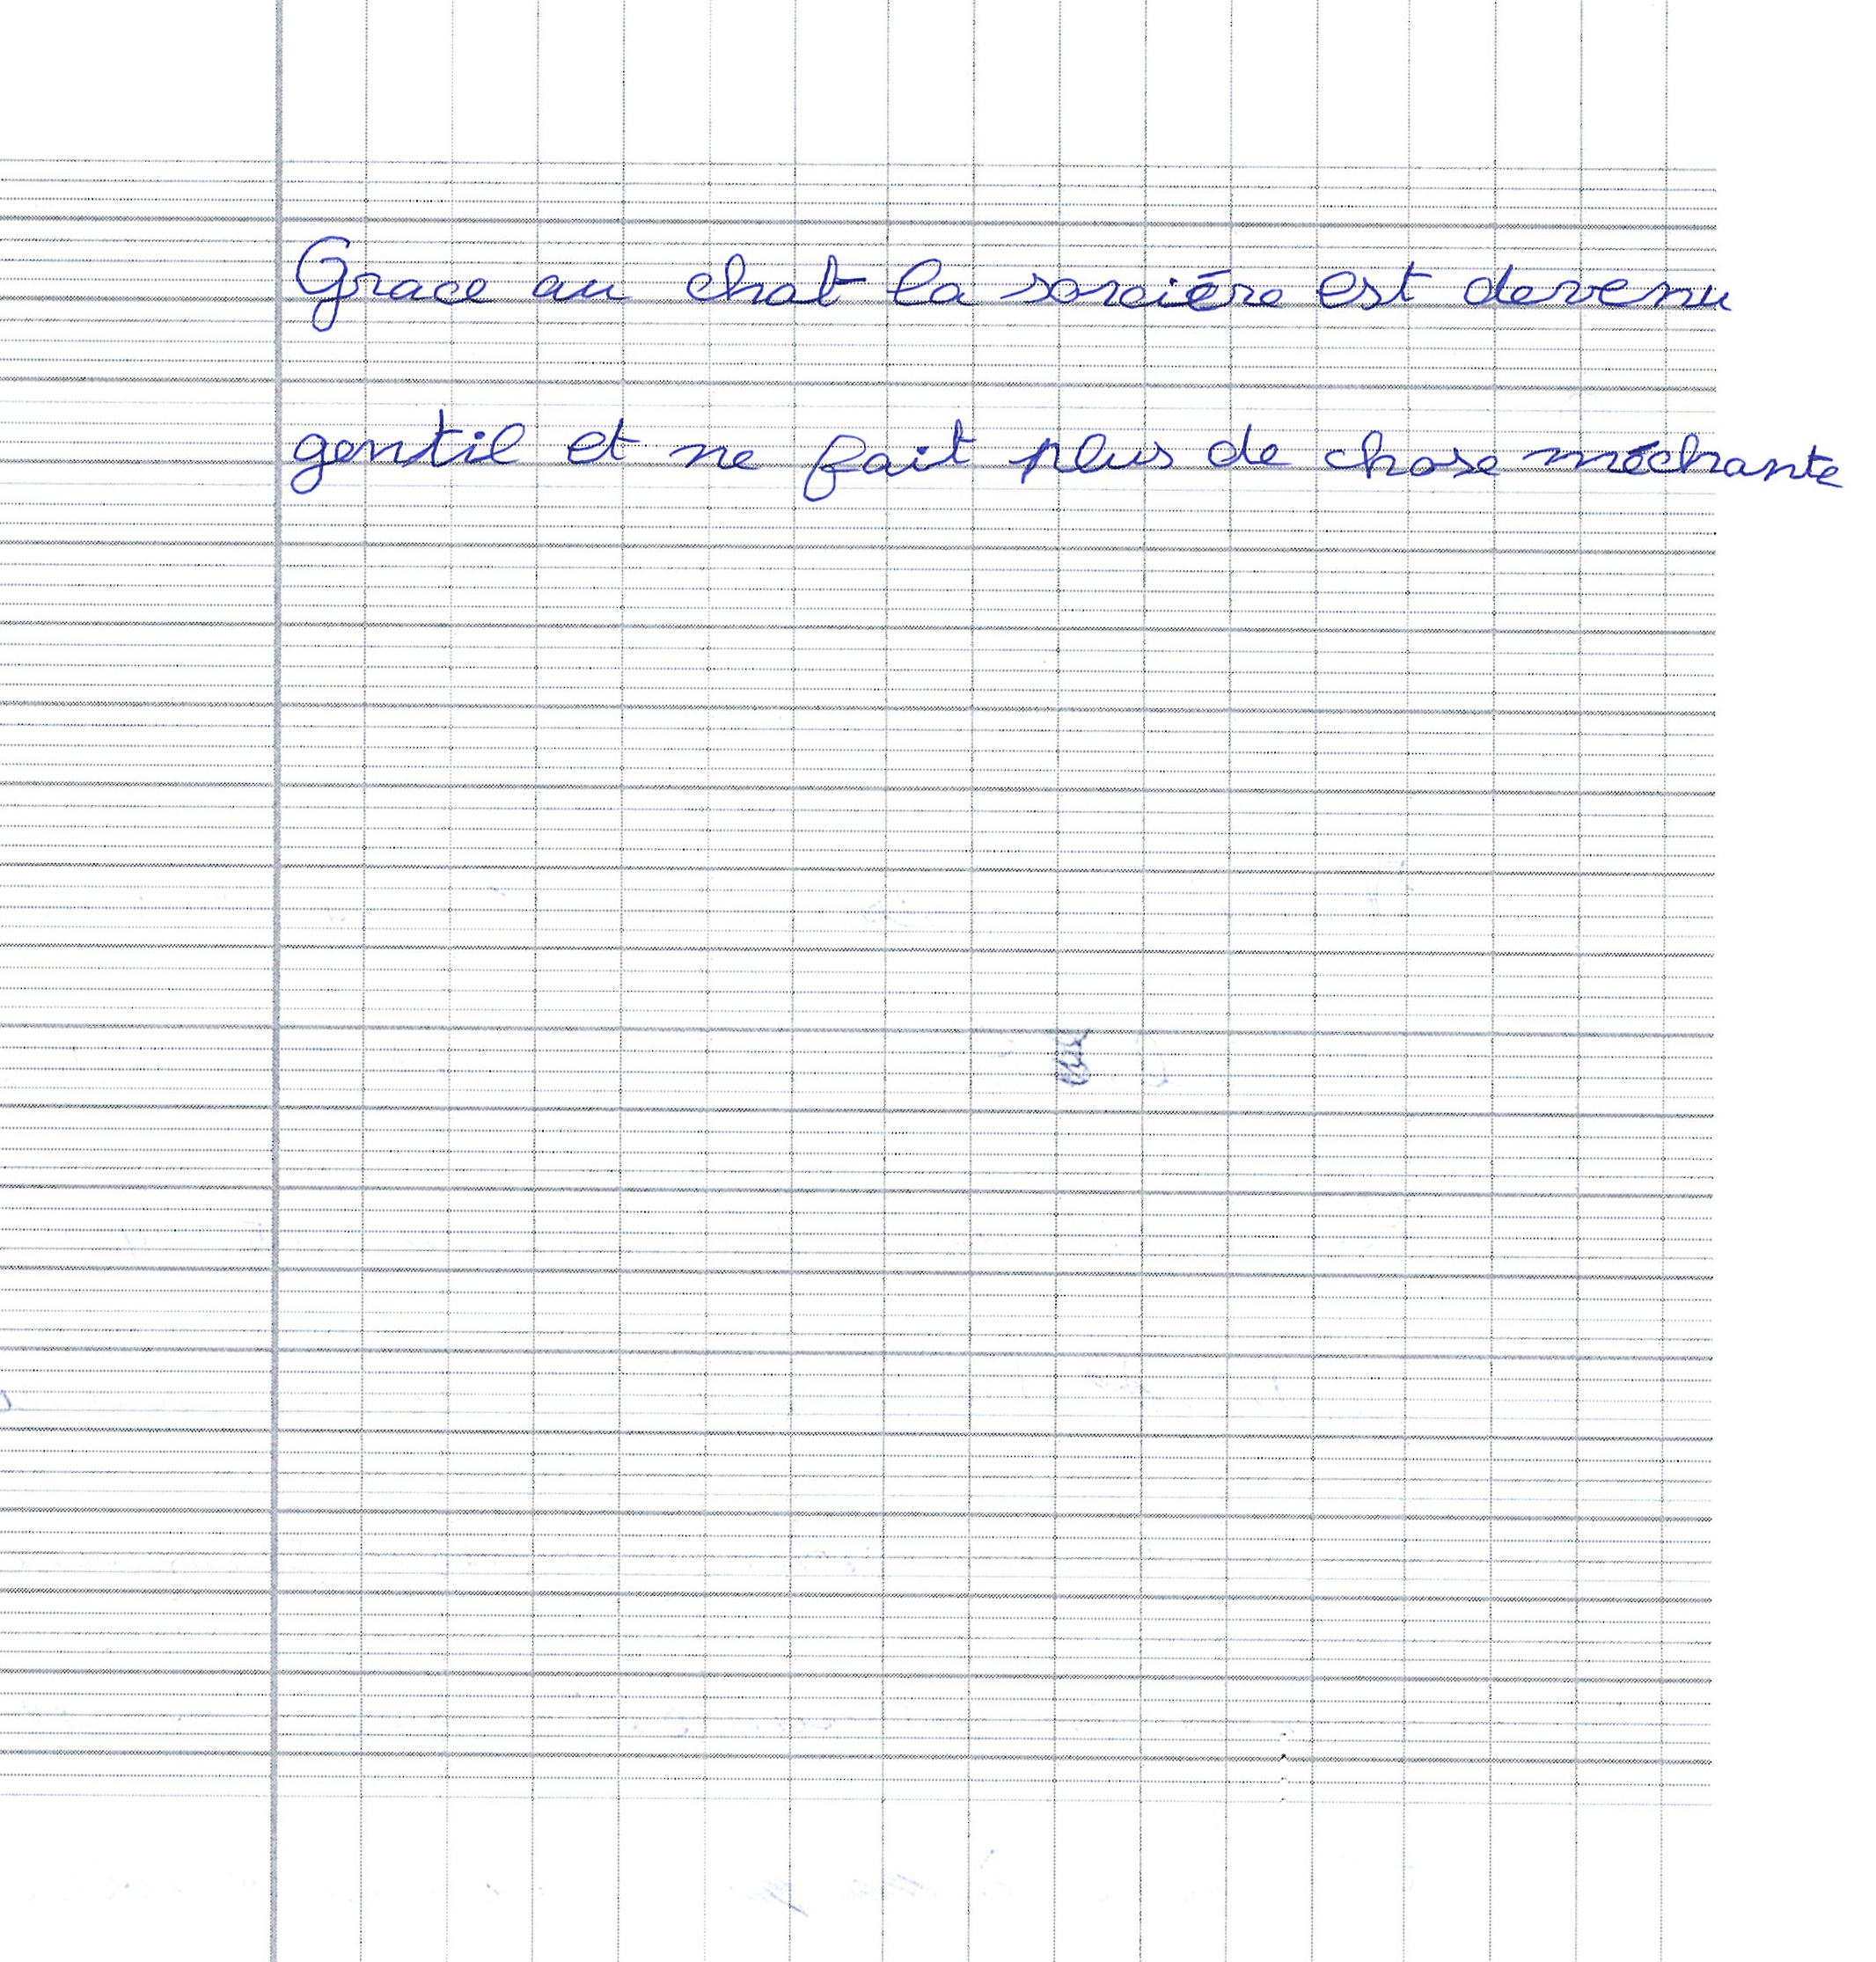 Grace au chat la sorciére est devenu
gentil et ne fait plus de chose méchante